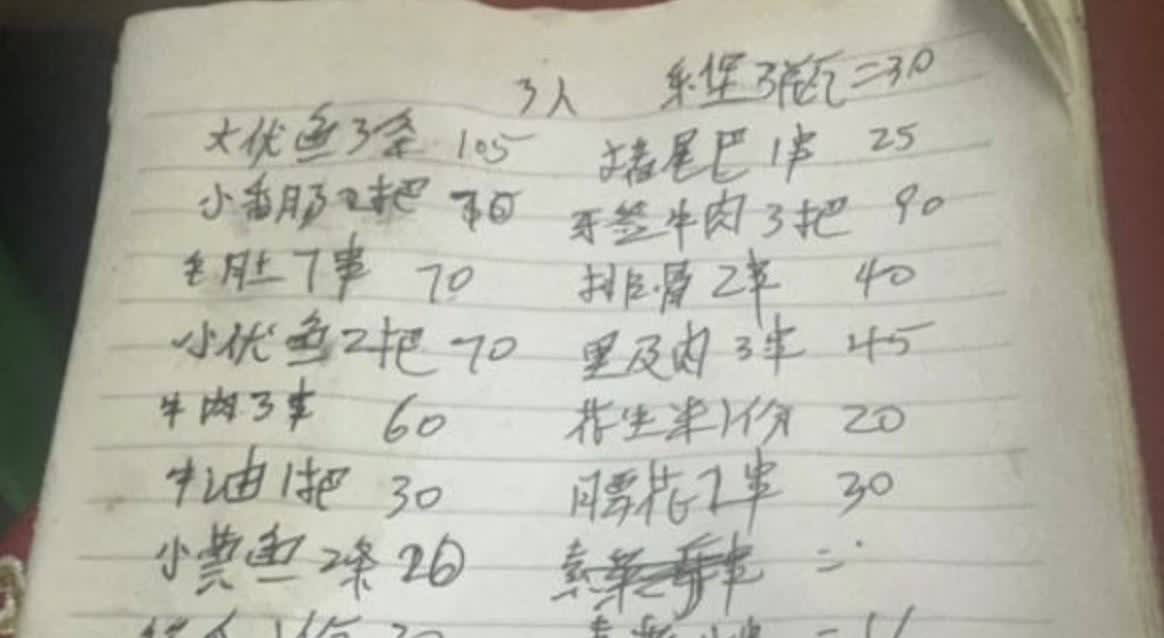 3人 乐堡3瓶=30
大优鱼3条 105 猪尾巴1串 25
小香肠2把 牙签牛肉3把 90
毛肚7串 70 排骨2串 40
小优鱼2把 70 里及肉3串 45
牛肉3串 60 花生米1份 20
牛油1把 30 腰花2串 30
小黄鱼2条 26 素菜 串 =